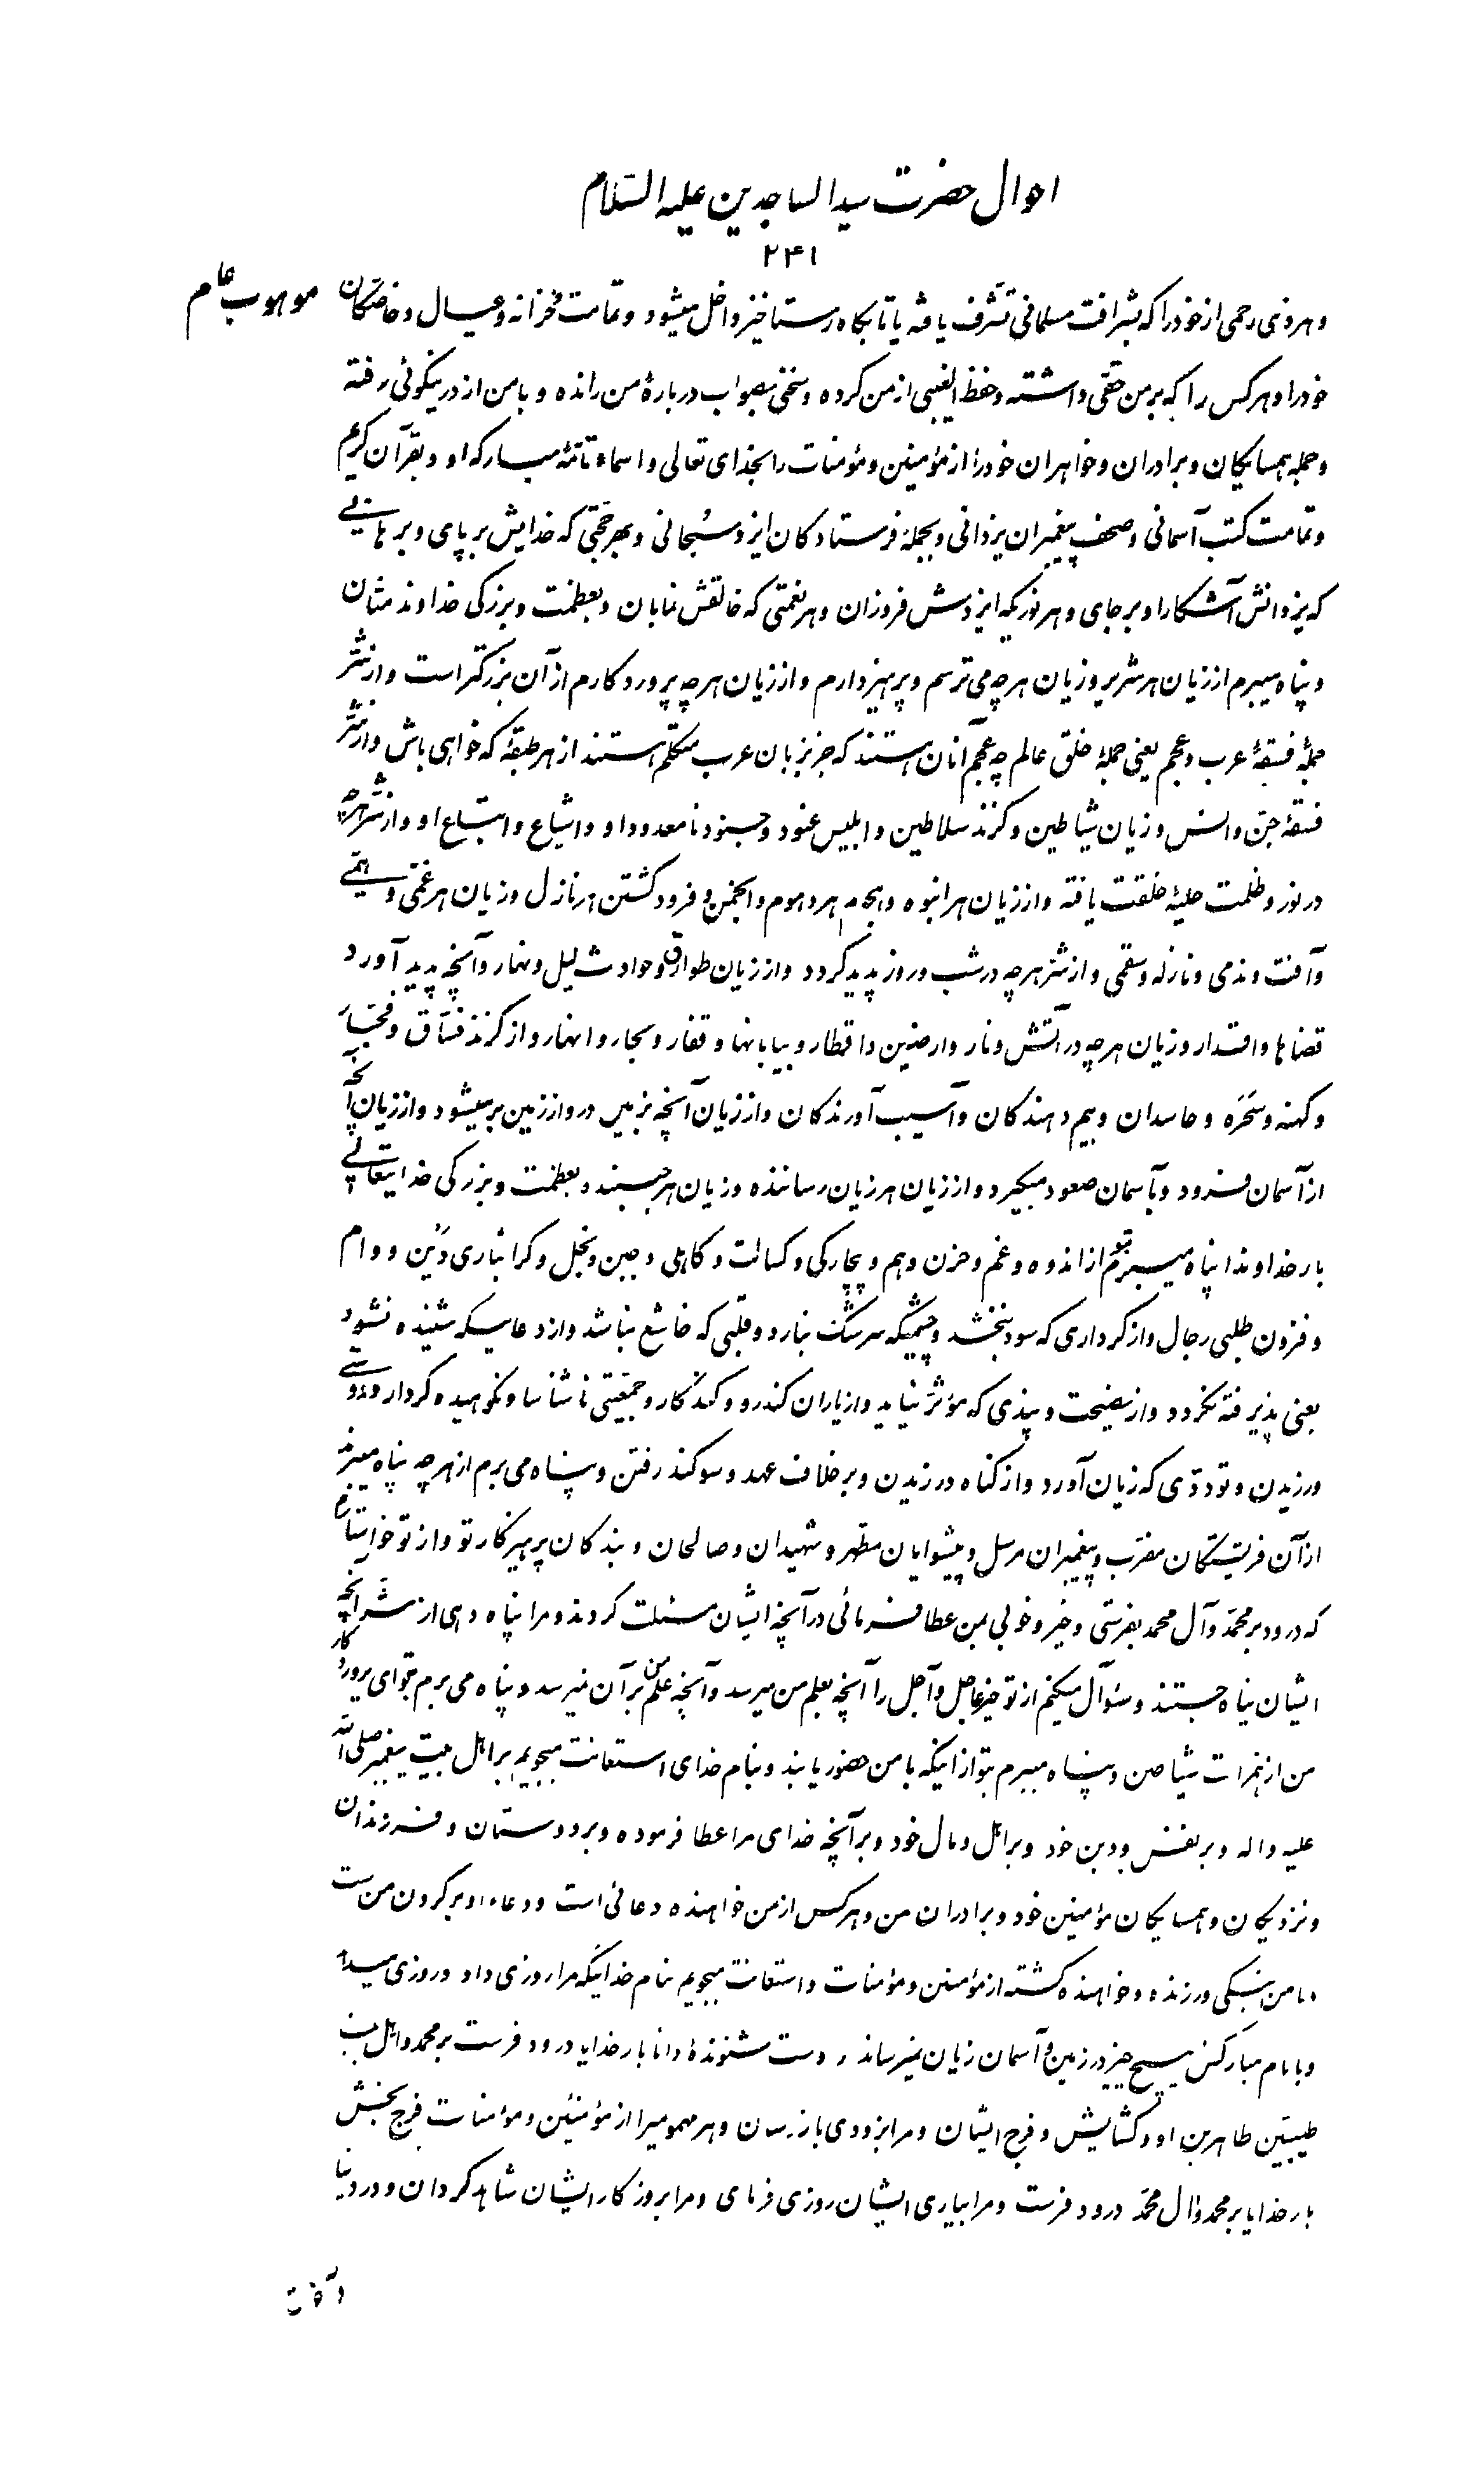 احوال حضرت سیدالساجدین علیه السّلام
۲۴۱
موهوب عام
و هر ذی رحمی از خود را که بشرافت مسلمانی تشرّف یافته یا تا بگاه رستاخیز داخل میشود و تمامت خزانه و عیال و خاصّگان
خود را و هر کس را که بر من حقّی داشته و حفظ الغیبی از من کرده و سخنی بصواب دربارهٔ من رانده و با من از در نیکوئی رفته
و جمله همسایگان و برادران و خواهران خود را از مؤمنین و مؤمنات را بخدای تعالی و اسماء تامّهٔ مبارکه او و بقرآن کریم
و تمامت کتب آسمانی و صحف پیغمبران یزدانی و بجملهٔ فرستادگان ایزد سُبحانی و بهر حجّتی که خدایش بر پای و برهانی
که یزدانش آشکارا و بر جای و هر نوریکه ایزدش فروزان و هر نعمتی که خالقش نمایان و بعظمت و بزرگی خداوند منّان
و پناه میبرم از زیان هر شریر و زیان هر چه می ترسم و پرهیز دارم و از زیان هر چه پروردگارم از آن بزرگتر است و از شرّ
جملهٔ فسقهٔ عرب و عجم یعنی جملهٔ خلق عالم چه عجم آنان هستند که جز بزبان عرب متکلّم هستند از هر طبقهٔ که خواهی باش و از شرّ
فسقهٔ جنّ و انس و زیان شیاطین و گزند سلاطین و ابلیس عنود و جنود نامعدود او و اشیاع و اتباع او و از شرّ هرچه
در نور و ظلمت حلیهٔ خلقت یافته و از زیان هر انبوه و هجوم هر دهوم و انجمن و فرود گشتن هر نازل و زیان هر غمّی و همّی
و آفت و ندمی و نازله و سقمی و از شرّ هر چه در شب و روز پدید گردد و از زیان طوارق و حوادث لیل و نهار و آنچه پدید آورد
قضاها و اقتدار و زیان هر چه در آتش و نار و ارضین و اقطار و بیابانها و قفار و بحار و انهار و از گزند فسّاق و فجّار
و کهنه و سَحَره و حاسدان و بیم دهندگان و آسیب آورندگان و از زیان آنچه بزمین در و از زمین بر میشود و از زیان آنچه
از آسمان فرود و بآسمان صعود میگیرد و از زیان هر زیان رساننده و زیان هر جنبنده و بعظمت و بزرگی خدایتعالی
بار خداوندا پناه میبرم بتو از اندوه و غم و حزن و هم و بیچارگی و کسالت و کاهلی و جبن و بخل و گرانباری دَین و وام
و فزون طلبی رجال و از کرداری که سود نبخشد و چشمیکه سرشک نبارد و قلبی که خاشع نباشد و از دعائیکه شنیده نشود
یعنی پذیرفته نگردد و از نصیحت و پندی که مؤثّر نیاید و از یاران کندرو و کندکار و جمعّیتی ناشناسا و نکوهیده کردار و دوستی
ورزیدن و تودّدی که زیان آورد و از گناه ورزیدن و بر خلاف عهد و سوگند رفتن و پناه می برم از هر چه پناه میبرند
از آن فریشتگان مقرّب و پیغمبران مرسل و پیشوایان مطهّر و شهیدان و صالحان و بندگان پرهیزکار تو و از تو خواستارم
که درود بر محمّد و آل محمد بفرستی و خیر و خوبی بمن عطا فرمائی در آنچه ایشان مسئلت کردند و مرا پناه دهی از شَر آنچه
ایشان پناه جستند و سؤال میکنم از تو خیر عاجل و آجل را آنچه بعلم من میرسد و آنچه علم من بر آن نمیرسد و پناه می برم بتو ای پروردگار
من از همزات شیاطین و پناه میبرم بتو از اینکه با من حضور یابند و بنام خدای استعانت میجویم بر اهل بیت پیغمبر صلی الله
علیه و اله و بر نفس و دین خود و بر اهل و مال خود و بر آنچه خدای مرا عطا فرموده و بر دوستان و فرزندان
و نزدیکان و همسایگان مؤمنین خود و برادران من و هر کس از من خواهنده دعائی است و دعاء او بر گردن من ست
با من نیکی ورزنده و خواهنده گشته از مؤمنین و مؤمنات و استعانت میجویم بنام خدائیکه مرا روزی داد و روزی میدهد
و با نام مبارکش هیچ چیز در زمین و آسمان زیان نمیرساند و دست شنوندهٔ دانا بار خدایا درود فرست بر محمد و اهل بیت
طیبّین طاهرین او و گشایش و فرج ایشان و مرا بزودی باز رسان و هر مهموم را از مؤمنین و مؤمنات فرج بخش
بار خدایا بر محمد و آل محمّد درود فرست و مرا بیاری ایشان روزی فرمای و مرا بروزگار ایشان شاهد گردان و در دنیا
و آخرت